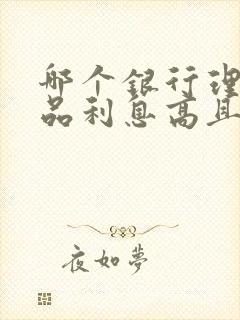 哪个银行理
品利息高且
夜如夢